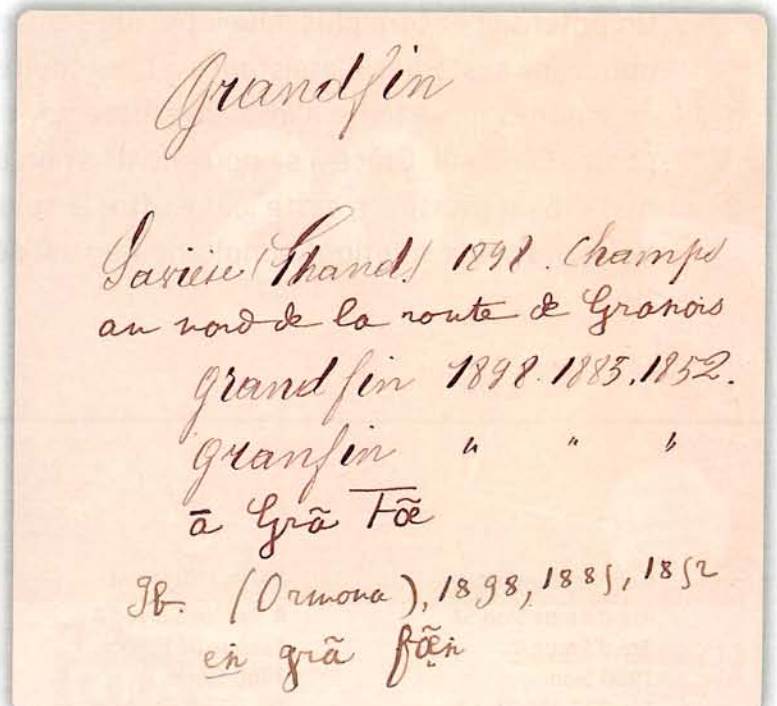 Grandfin
Savièse (Chand.) 1898. Champs
au nord de la route de Granois
grandfin 1898. 1885. 1852.
granfin " " "
ā Grã Fœ̃
Jb. (Ormona), 1898, 1885, 1852
en grã fœ̃n